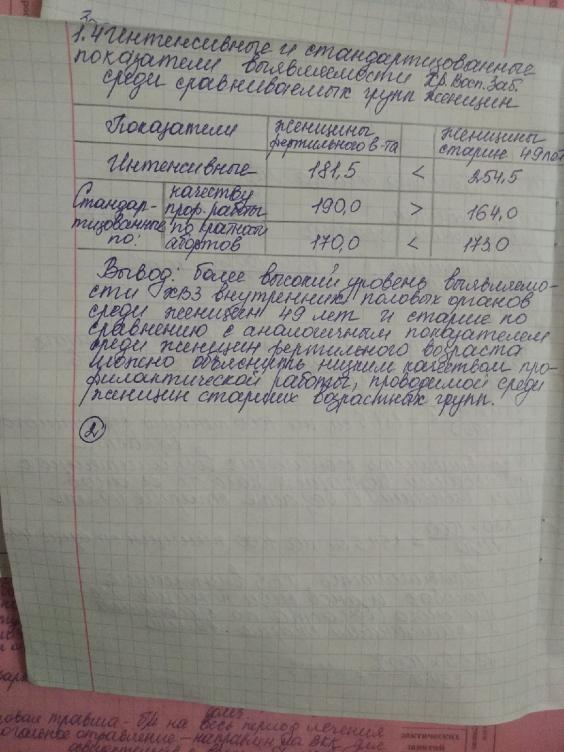 1.4 Интенсивные и стандартизованные
показатели выявляемости хр. восп. заб.
среди сравниваемых групп женщин
Показатели женщины фертильного в-та женщины старше 49 лет
Интенсивные 181,5 < 254,5
Стандар-
тизованные
по:
качеству
проф. работы 190,0 > 164,0
по кратности
абортов 170,0 < 173,0
Вывод: более высокий уровень выявляемо-
сти ХВЗ внутренних половых органов
среди женщин 49 лет и старше по
сравнению с аналогичным показателем
среди женщин фертильного возраста
можно объяснить низким качеством про-
филактической работы, проводимой среди
женщин старших возрастных групп.
2
травма - б/л на весь период лечения
отравление - направлен на ВКК